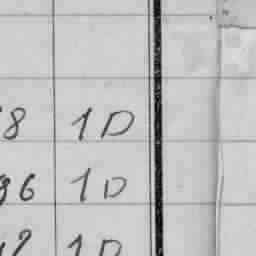 8 1D
86 1D
1D